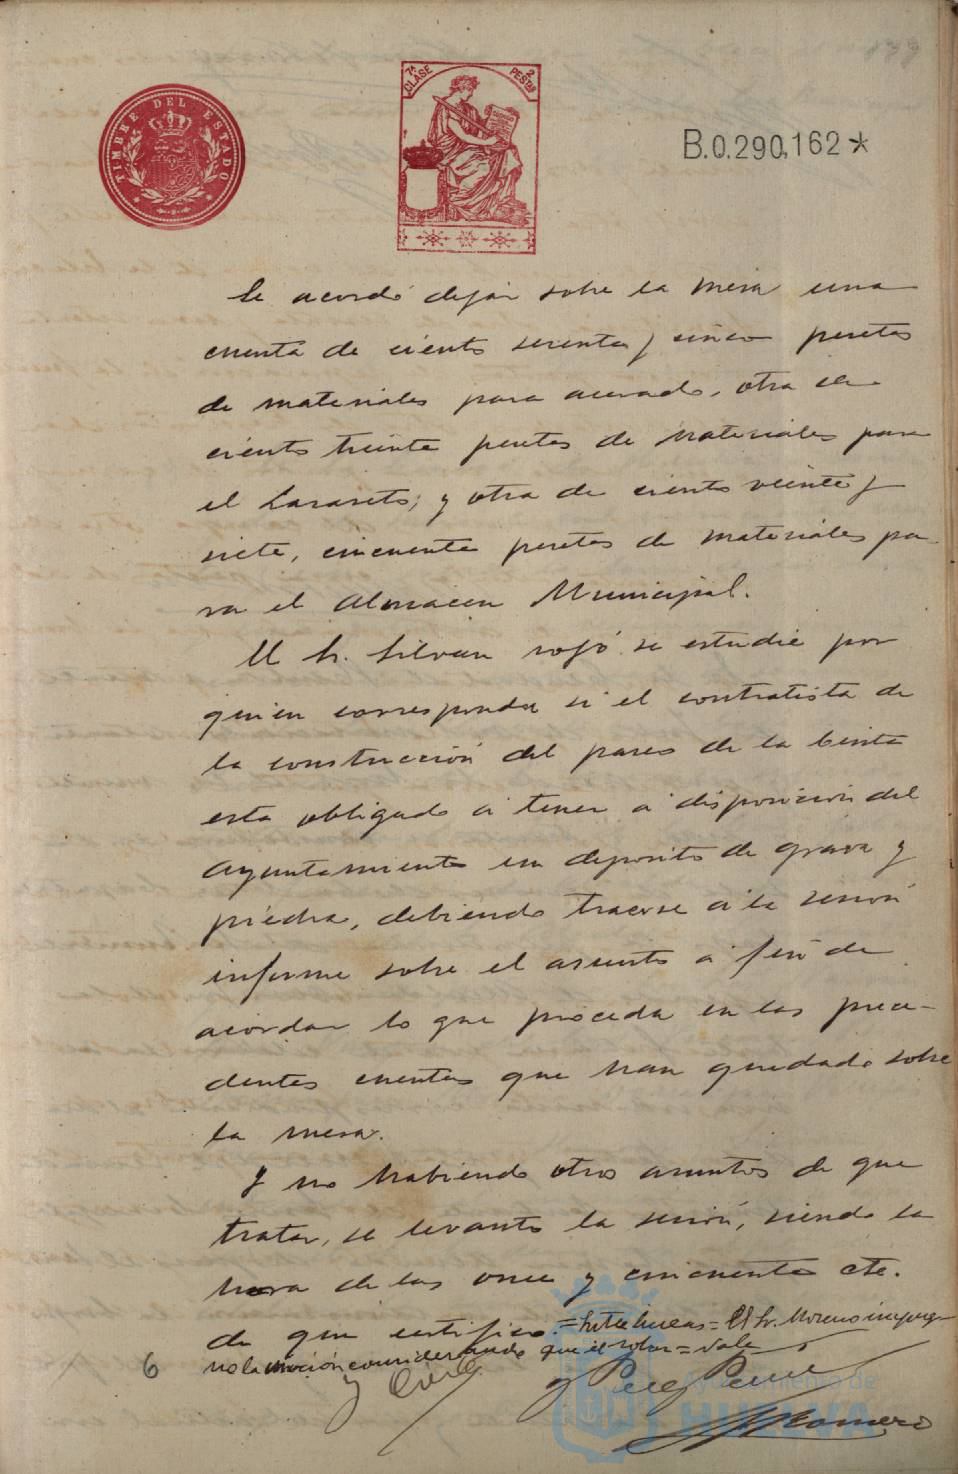 TIMBRE DEL ESTADO
7ª CLASE 2 PESTAS
B.0.290,162*
139
Se acordó dejar sobre la mesa una
cuenta de ciento setenta y cinco pesetas
de materiales para acerado, otra de
ciento treinta pesetas de materiales para
el Lazareto; y otra de ciento veinte y
siete, cincuenta pesetas de materiales pa-
ra el Almacen Municipal.
El Sr. Silvan rogó se estudie por
quien corresponda si el contratista de
la construcción del paseo de la Cinta
esta obligado a tener a disposición del
Ayuntamiento un deposito de grava y
piedra, debiendo traerse a la sesión
informe sobre el asunto a fin de
acordar lo que proceda en las prece-
dentes cuentas que han quedado sobre
la mesa.
Y no habiendo otros asuntos de que
tratar, se levanto la sesión, siendo la
hora de las once y cincuenta etc.
de que certifico.=Entre lineas=El Sr. Moreno impug-
no la moción considerando que el solar=Vale
6
Ayuntamiento de
HUELVA
Romero